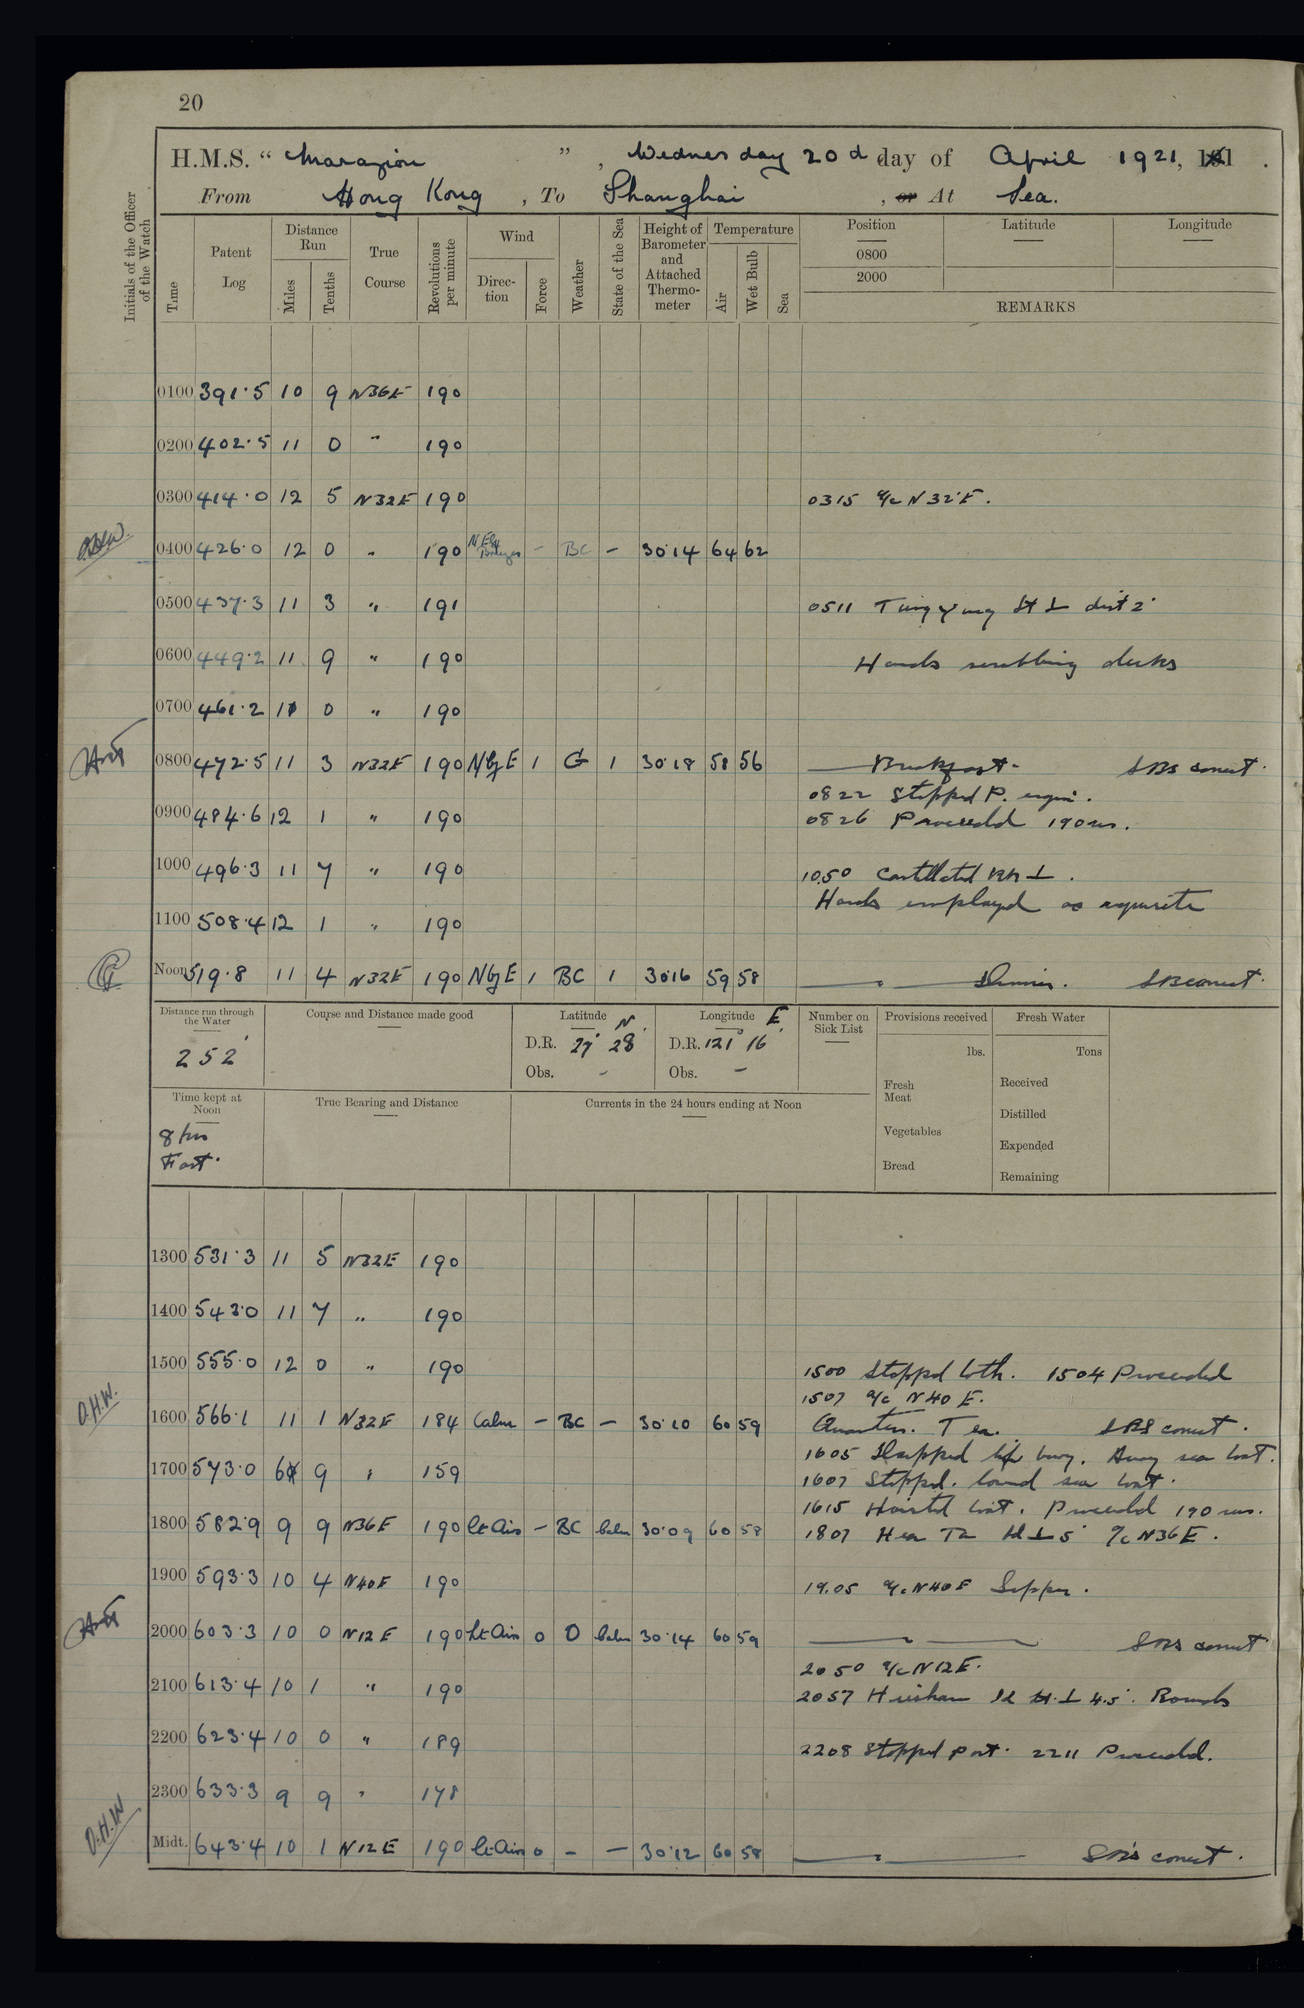 20
H.M.S. “ Marazion ” , Wednesday 20th day of April 1921, 191 .
From Hong Kong , To Shanghai , or At Sea.
Initials of the Officer of the Watch
Time
Patent Log
Distance Run
Miles
Tenths
True Course
Revolutions per minute
Wind
Direction
Force
Weather
State of the Sea
Height of Barometer and Attached Thermometer
Temperature
Air
Wet Bulb
Sea
Position
Latitude
Longitude
0800
2000
REMARKS
0100 391.5 10 9 N36E 190
0200 402.5 11 0 " 190
0300 414.0 12 5 N32E 190 0315 a/c N32°E.
0400 426.0 12 0 " 190 - BC - 30.14 64 62
0500 437.3 11 3 " 191 0511 Tung yung Lt ⊥ dist 2'
0600 449.2 11 9 " 190 Hands scrubbing decks
0700 461.2 11 0 " 190
0800 472.5 11 3 N32E 190 NbyE 1 G 1 30.18 58 56 Breakfast. SBs correct.
0822 Stopped P. engine.
0900 484.6 12 1 " 190 0826 Proceeded 190 revs.
1000 496.3 11 7 " 190 10.50 ⊥ .
Hands employed as requisite
1100 508.4 12 1 " 190
Noon 519.8 11 4 N32E 190 NbyE 1 BC 1 30.16 59 58 Dinner. SBs correct.
Distance run through the Water
252'
Course and Distance made good
Latitude N.
D.R. 27° 28'
Obs. -
Longitude E.
D.R. 121° 16'
Obs. -
Number on Sick List
Provisions received
lbs.
Fresh Meat
Vegetables
Bread
Fresh Water
Tons
Received
Distilled
Expended
Remaining
Time kept at Noon
8 hrs
Fast.
True Bearing and Distance
Currents in the 24 hours ending at Noon
1300 531.3 11 5 N32E 190
1400 543.0 11 7 " 190
1500 555.0 12 0 " 190 1500 Stopped both. 1504 Proceeded
1507 a/c N40E.
D.H.W. 1600 566.1 11 1 N32E 184 Calm - BC - 30.10 60 59 Quarters. Tea. SBs correct.
1605 Slipped life buoy. Away sea boat.
1700 573.0 6 9 " 159 1607 Stopped. lowered sea boat.
1615 Hoisted boat. Proceeded 190 revs.
1800 582.9 9 9 N36E 190 Lt Airs - BC Calm 30.09 60 58 1807 Hea Ta Id ⊥ 5' a/c N36E.
1900 593.3 10 4 N40E 190 19.05 a/c N40E Supper.
2000 603.3 10 0 N12E 190 Lt Airs 0 O Calm 30.14 60 59 SBs correct
2050 a/c N12E.
2100 613.4 10 1 " 190 2057 Hieshan Id Lt. ⊥ 4.5'. Rounds
2200 623.4 10 0 " 189 2208 Stopped port. 2211 Proceeded.
2300 633.3 9 9 " 178
D.H.W Midt. 643.4 10 1 N12E 190 Lt Airs 0 - - 30.12 60 58 SBs correct.